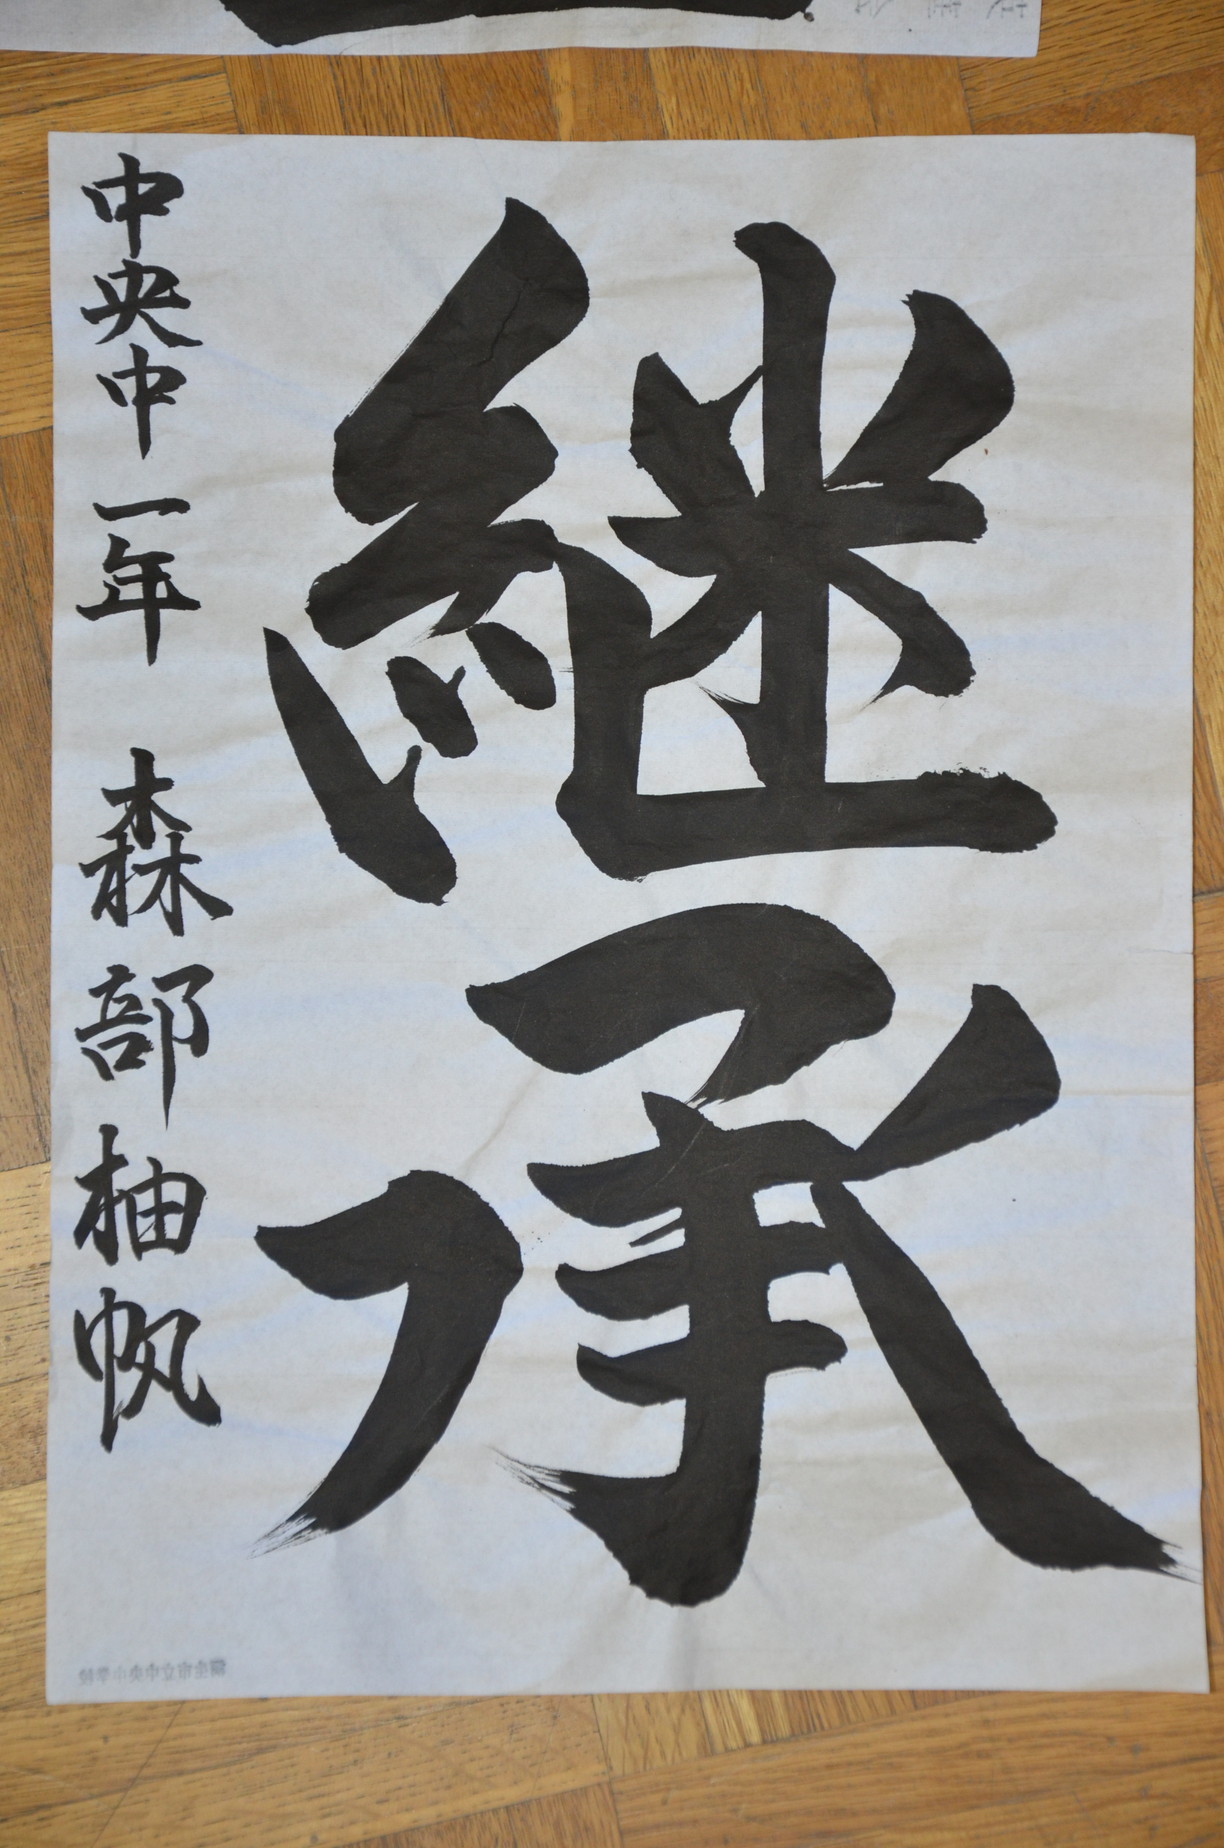 継承
中央中 一年 森部柚帆